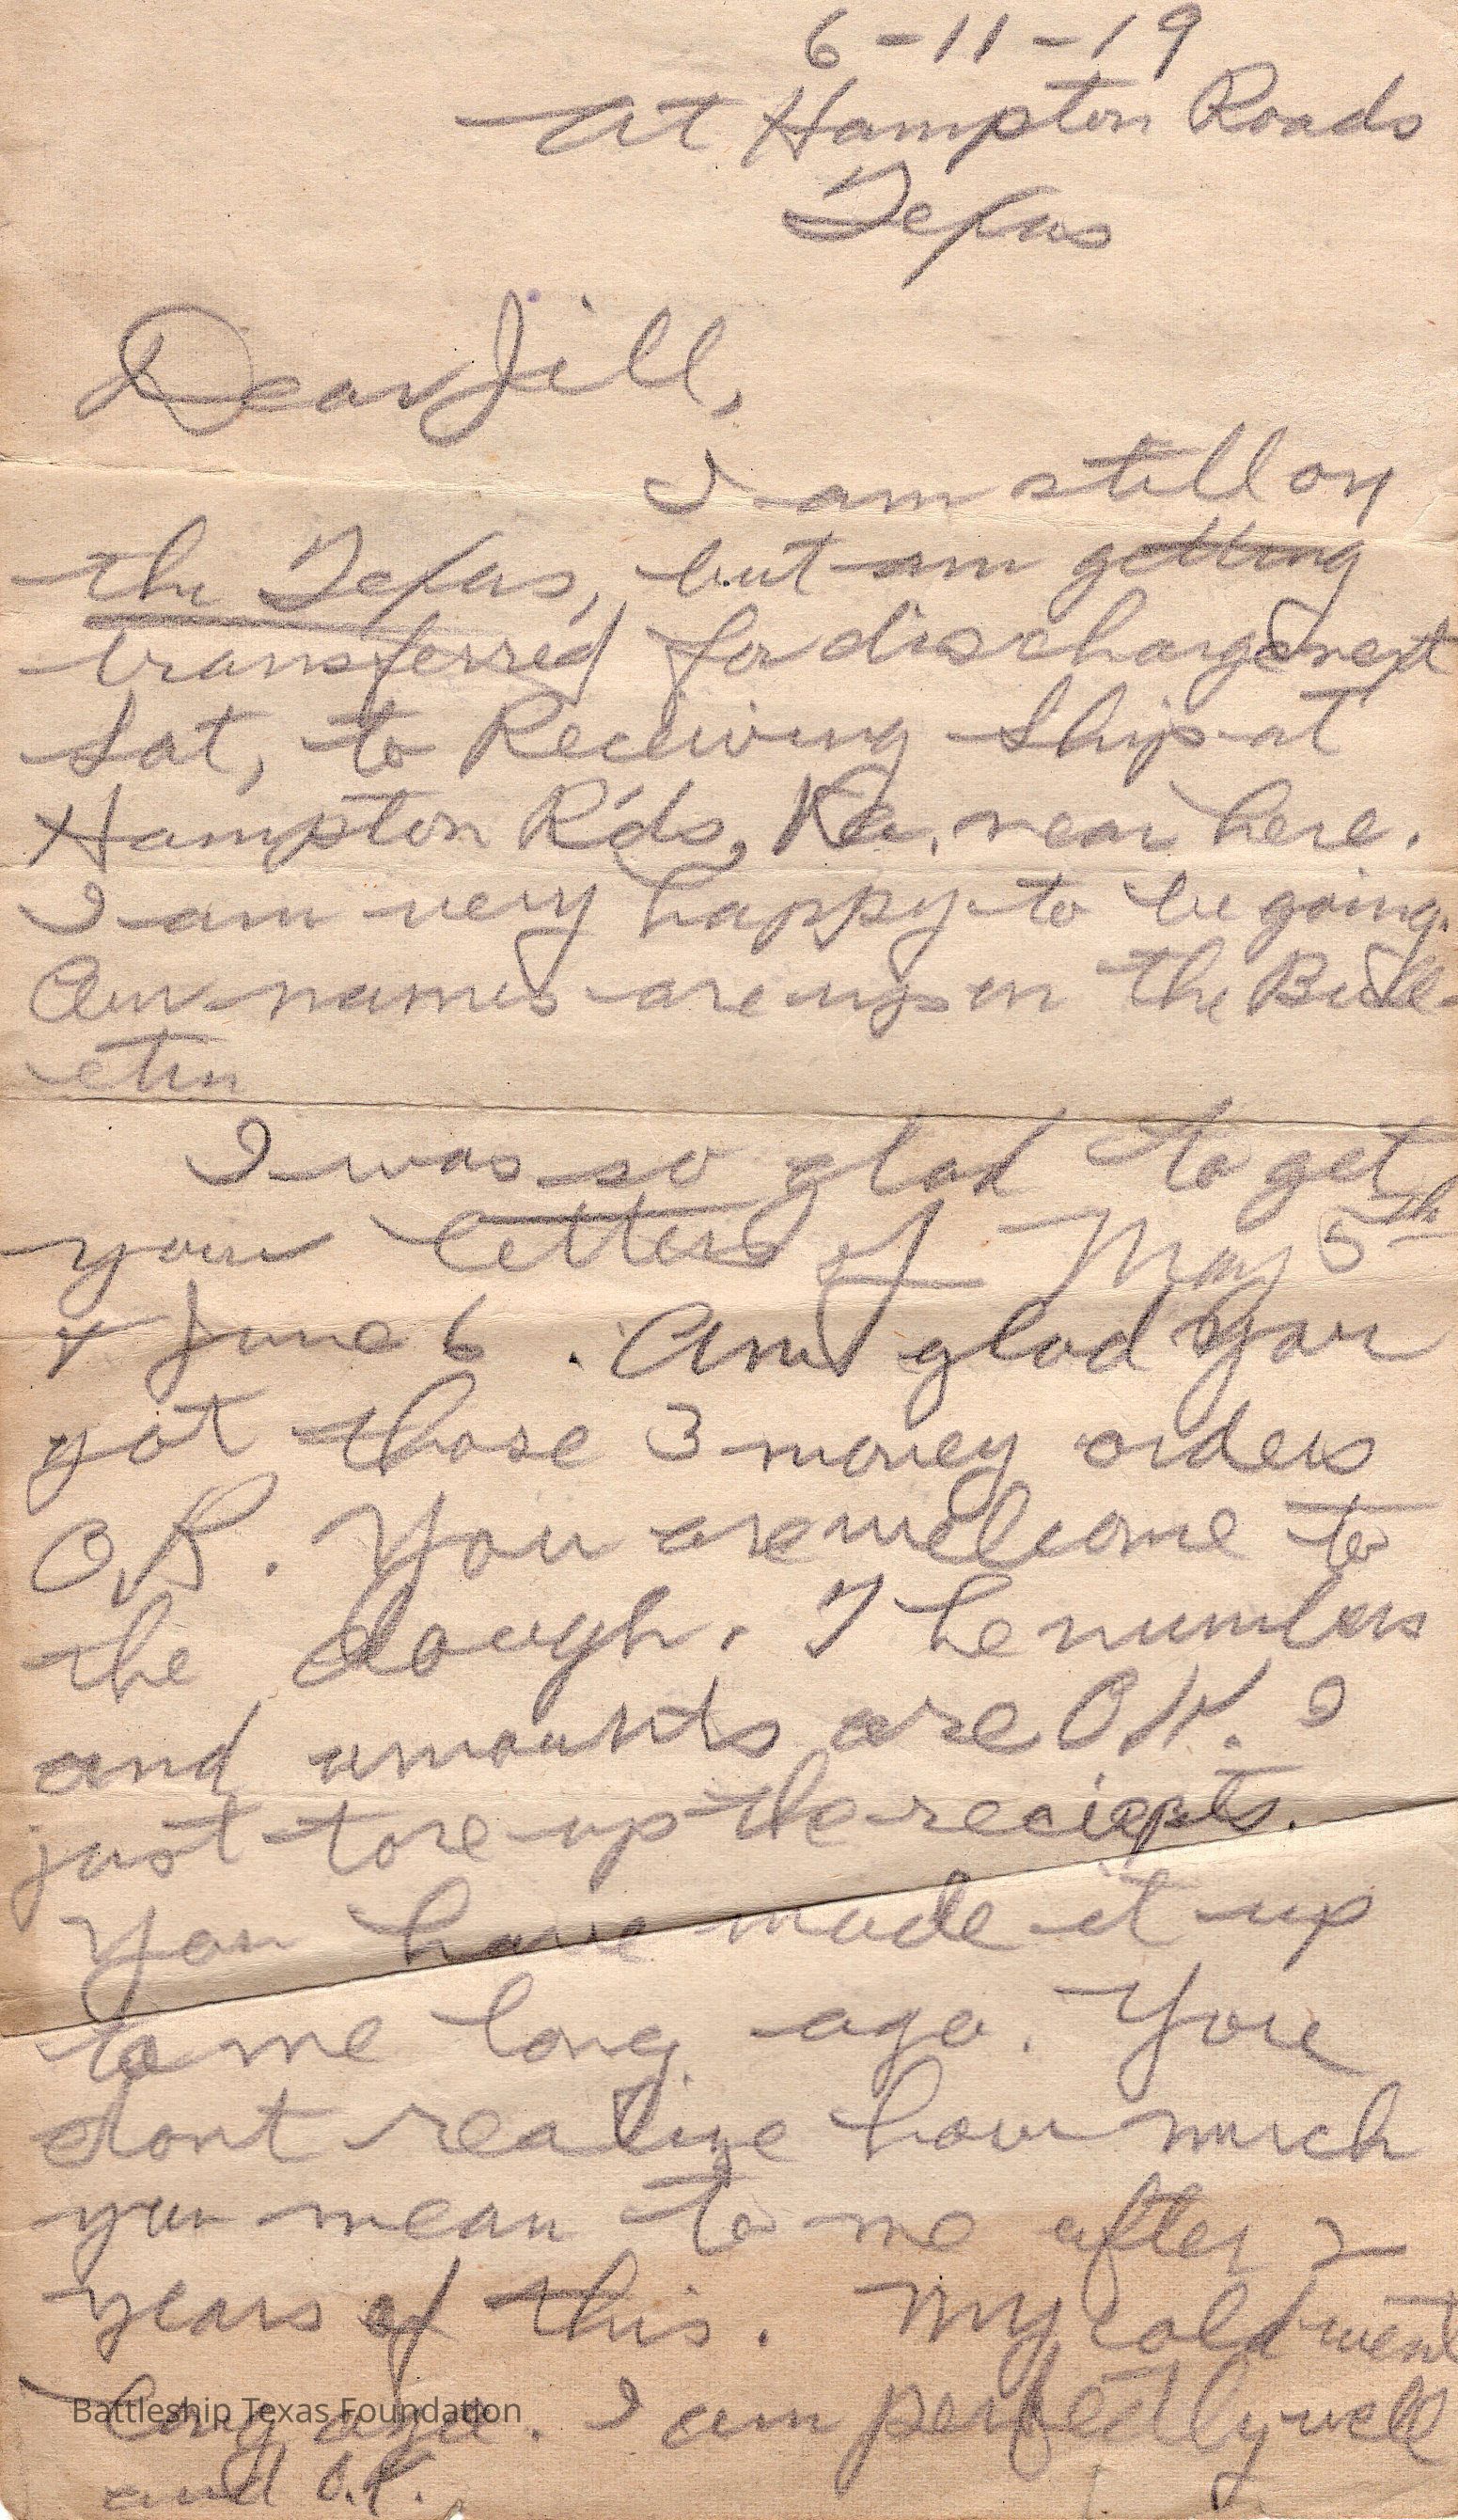 6-11-19
At Hampton Roads
Texas
Dear Jill,
I am still on
the Texas, but am getting
transferred for discharge next
Sat, to Receiving Ship at
Hampton R'ds, Va. near here.
I am very happy to be going.
Our names are up on the Bull-
etin
I was so glad to get
your letters of May 5th
& June 6. Am glad you
got those 3 money orders
O.K. You are welcome to
the dough. The numbers
and amounts are OK. I
just tore up the reciepts.
You have made it up
to me long ago. You
dont realize how much
you mean to me after 2
years of this. My cold went
long ago. I am perfectly well
and O.K.
Battleship Texas Foundation